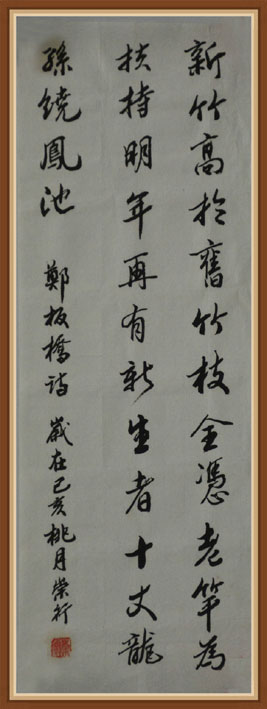 新竹高於舊竹枝全憑老竿為
扶持明年再有新生者十丈龍
孫繞鳳池 鄭板橋詩 歲在己亥桃月榮行